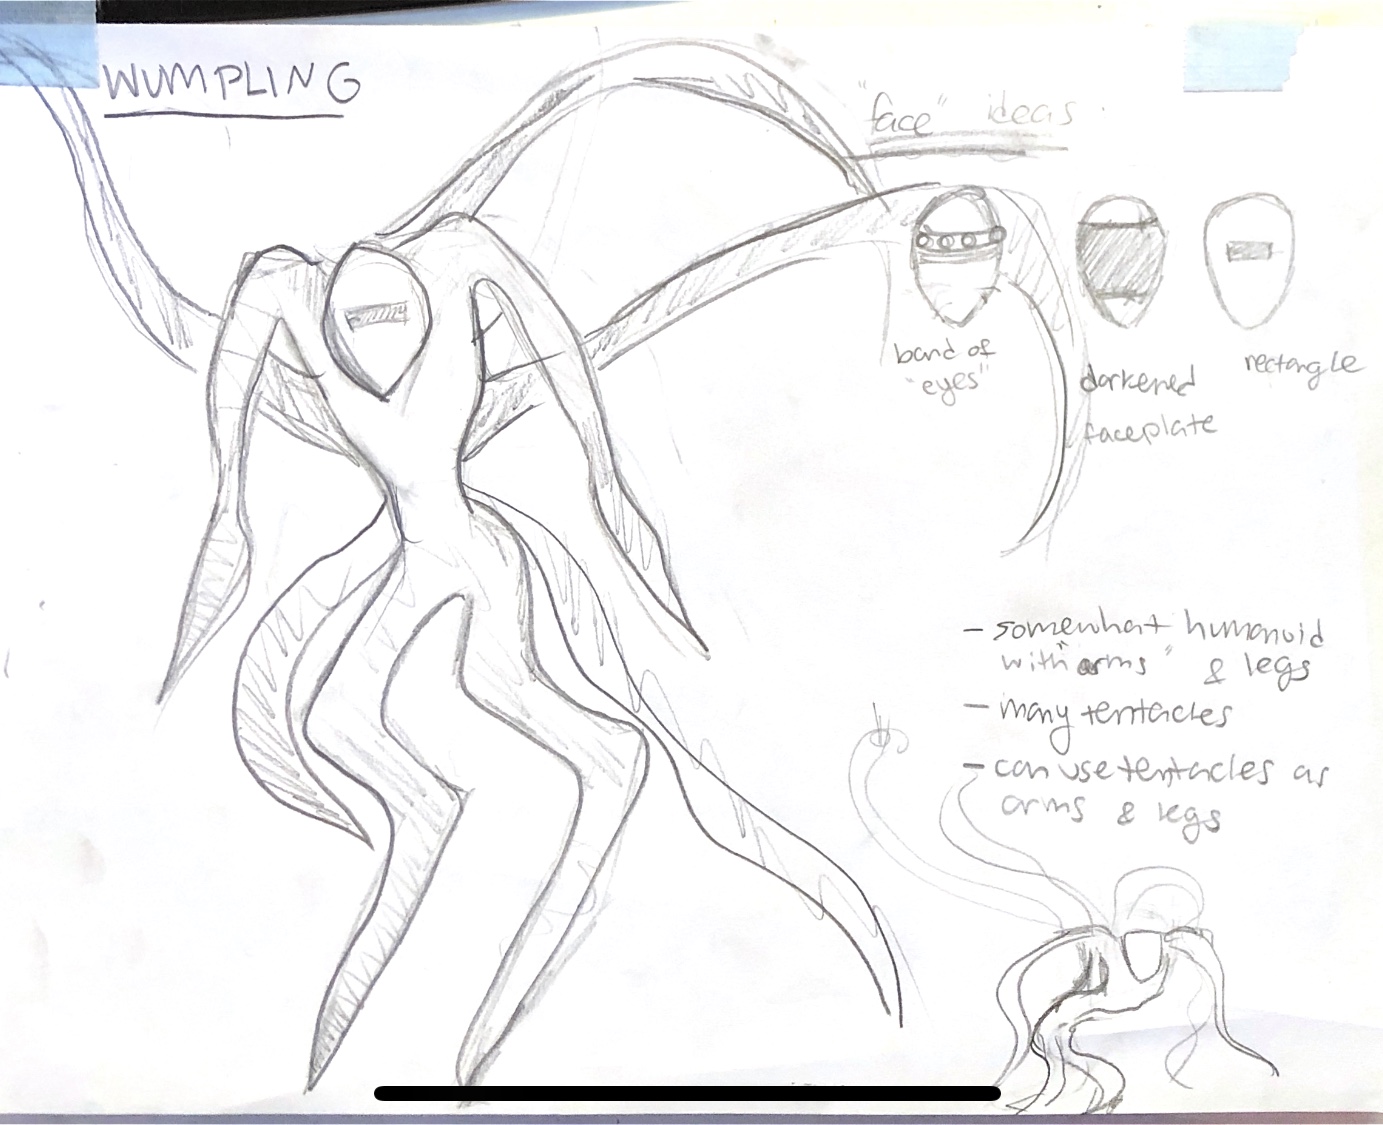 WUMPLING
"face" ideas
band of
"eyes"
darkened
faceplate
rectangle
- somewhat humanoid
with "arms" & legs
- many tentacles
- can use tentacles as
arms & legs